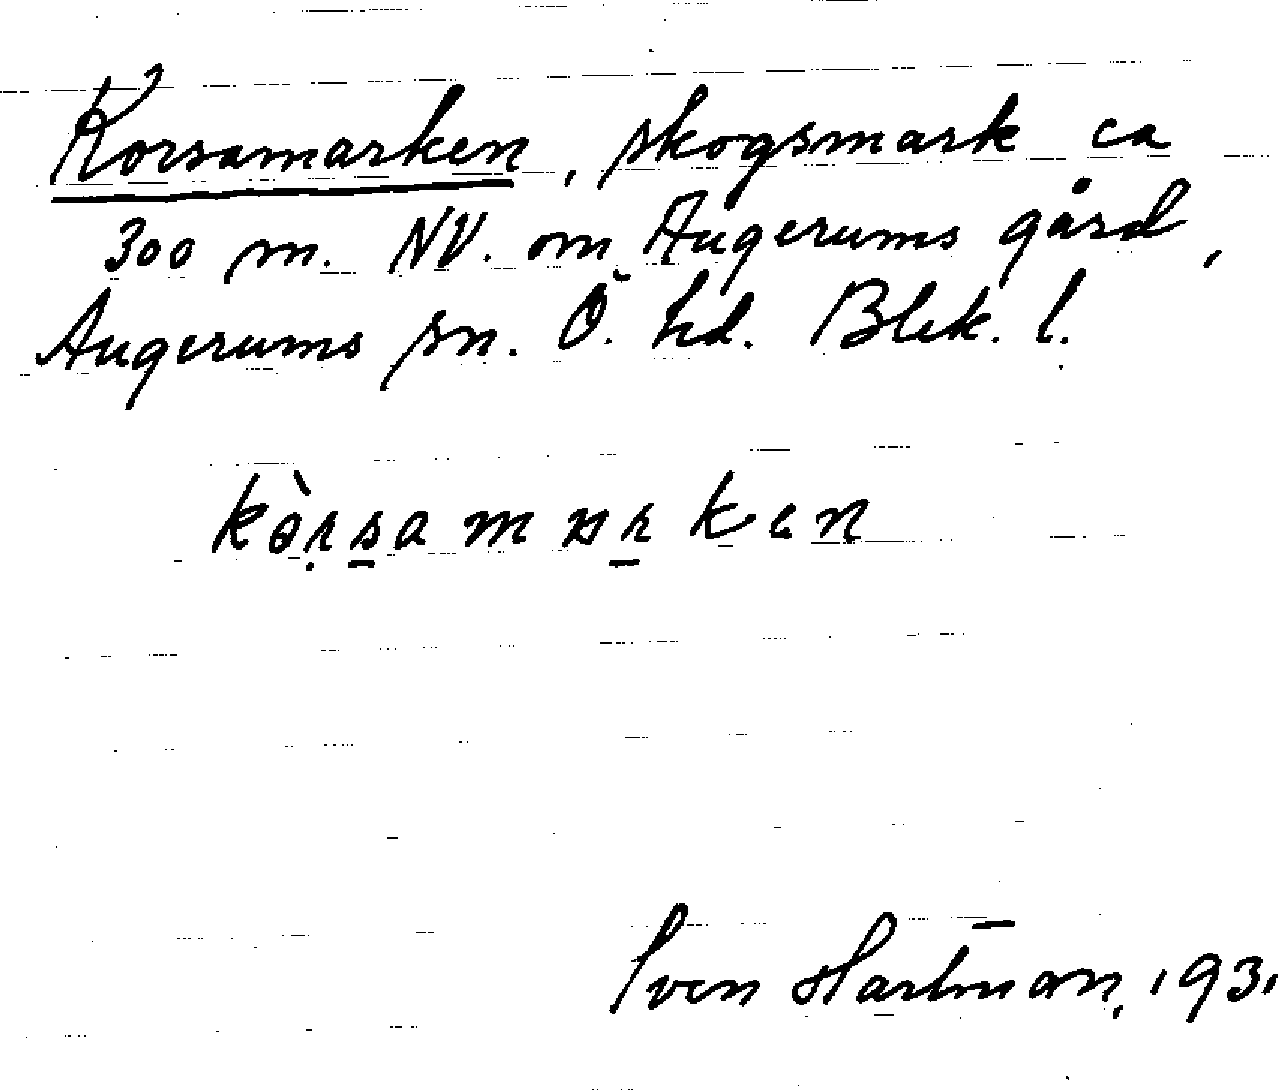 Korsamarken, skogsmark ca
300 m. NV. om Augerums gård,
Augerums sn. Ö. hd. Blek. l.
kòṛs̱amɑṟkɛn
Sven Hartman, 1931